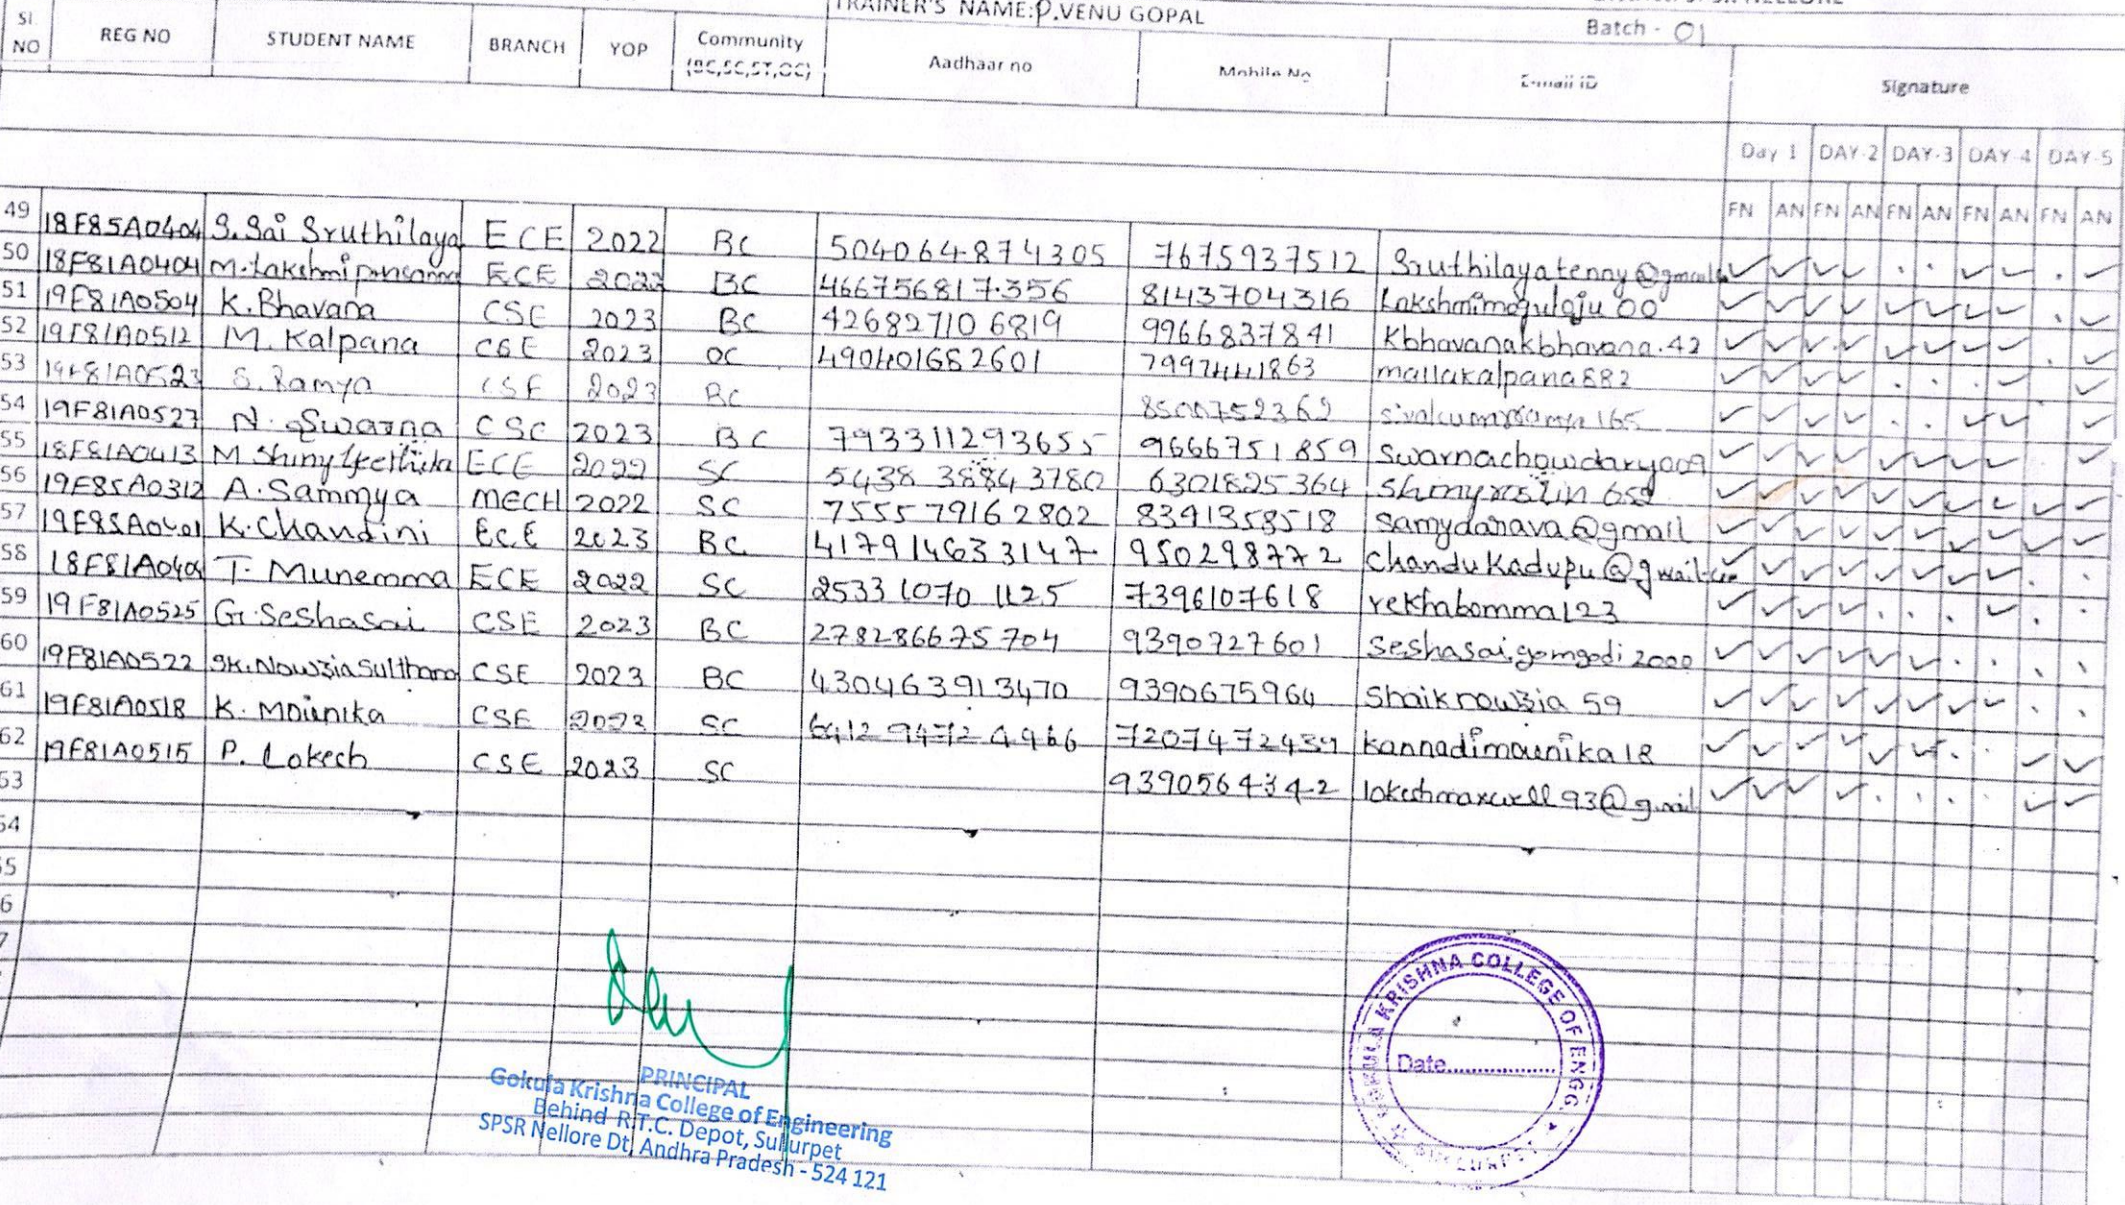 TRAINER'S NAME: P.VENU GOPAL
Batch - 01
Sl. NO REG NO STUDENT NAME BRANCH YOP Community (BC,SC,ST,OC) Aadhaar no Mobile No E-mail ID Signature
Day 1 DAY-2 DAY-3 DAY-4 DAY-5
FN AN FN AN FN AN FN AN FN AN
49 18F85A0404 S.Sai Sruthilaya ECE 2022 BC 504064874305 7675937512 Sruthilayatenny@gmail
50 18F81A0404 M.Lakshmi ECE 2022 BC 466756817356 8143704316 Lakshmimoguloju 00
51 19F81A0504 K.Bhavana CSE 2023 BC 426827106819 9966837841 Kbhavanakbhavana.42
52 19F81A0512 M. Kalpana CSE 2023 OC 490401682601 7997441863 mallakalpana882
53 19F81A0523 S. Ramya CSE 2023 BC 8500752362
54 19F81A0527 N. Swarna CSC 2023 BC 793311293655 9666751859 Swarnachowdary009
55 18F81A0413 M ECE 2022 SC 5438 38843780 6301825364
56 19F85A0312 A.Sammya MECH 2022 SC 755579162802 8391358518 Samydanava@gmail
57 K.Chandini E.C.E 2023 BC 417914633147 950298772 ChanduKadupu@gmail
58 18F81A0409 T. Munemma ECE 2022 SC 2533 1070 1125 7396107618 rekhabomma123
59 19F81A0525 G.Seshasai CSE 2023 BC 278286675704 9390727601 Seshasai.gomgodi2000
60 19F81A0522 SK.Nowzia Sulthana CSE 2023 BC 430463913470 9390675964 Shaiknowzia 59
61 19F81A0518 K. Mounika CSE 2023 SC 6412 9472 4966 7207472439 Kannadimounika18
62 19F81A0515 P. Lokesh CSE 2023 SC 9390564342 lokeshmaxwell93@gmail
53
54
55
6
7
PRINCIPAL
Gokula Krishna College of Engineering
Behind R.T.C. Depot, Sullurpet
SPSR Nellore Dt, Andhra Pradesh - 524 121
GOKULA KRISHNA COLLEGE OF ENGG.
Date..................
SULLURPET